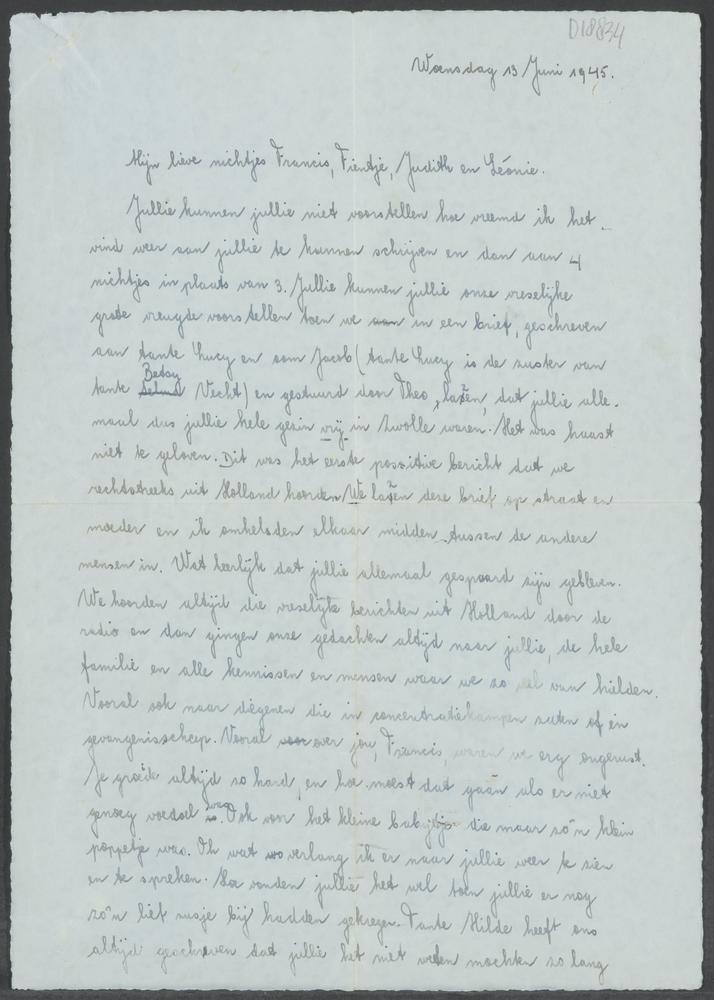 D18834
Woensdag 13 Juni 1945.
Mijn lieve nichtjes Francis, Fientje, Judith en Léonie.
Jullie kunnen jullie niet voorstellen hoe vreemd ik het
vind weer aan jullie te kunnen schrijven en dan aan 4
nichtjes in plaats van 3. Jullie kunnen jullie onze vreselijke
grote vreugde voorstellen toen we aan in een brief, geschreven
aan tante Lucy en oom Jacob (tante Lucy is de zuster van
Betsy
tante Selma Vecht) en gestuurd door Theo, lazen, dat jullie alle-
maal dus jullie hele gezin vrij in Zwolle waren. Het was haast
niet te geloven. Dit was het eerste possitive bericht dat we
rechtstreeks uit Holland hoorden. We lazen deze brief op straat en
moeder en ik omhelsden elkaar midden tussen de andere
mensen in. Wat heerlijk dat jullie allemaal gespaard zijn gebleven.
We hoorden altijd die vreselijke berichten uit Holland door de
radio en dan gingen onze gedachten altijd naar jullie, de hele
familie en alle kennissen en mensen waar we zo veel van hielden.
Vooral ook naar diegenen die in concentratiekampen zaten of in
gevangenisschap. Vooral voor over jou, Francis, waren we erg ongerust.
Je groeide altijd zo hard, en hoe moest dat gaan als er niet
genoeg voedsel is was. Ook voor het kleine babytje die maar zo'n klein
poppetje was. Oh wat zo verlang ik er naar jullie weer te zien
en te spreken. Hoe vonden jullie het wel toen jullie er nog
zo'n lief zusje bij hadden gekregen. Tante Hilde heeft ons
altijd geschreven dat jullie het niet weten mochten zo lang